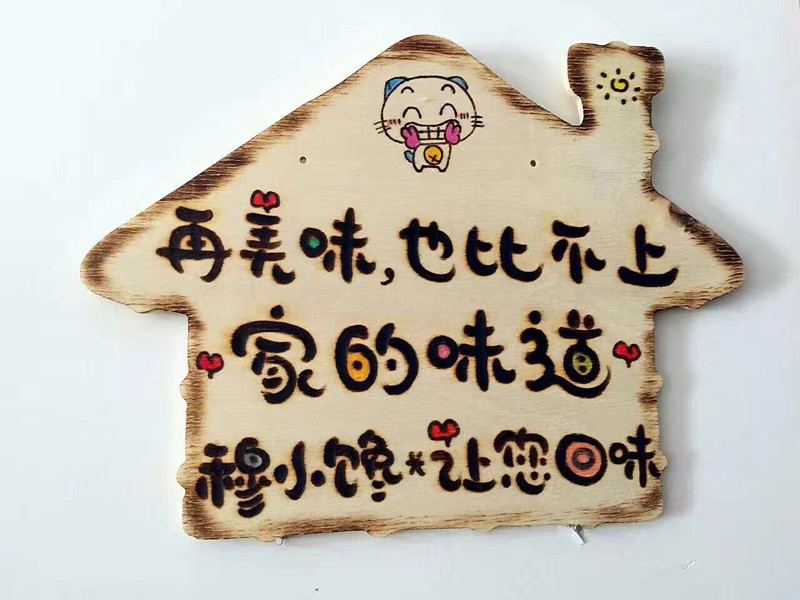 再美味,也比不上
家的味道
穆小馋*让您回味